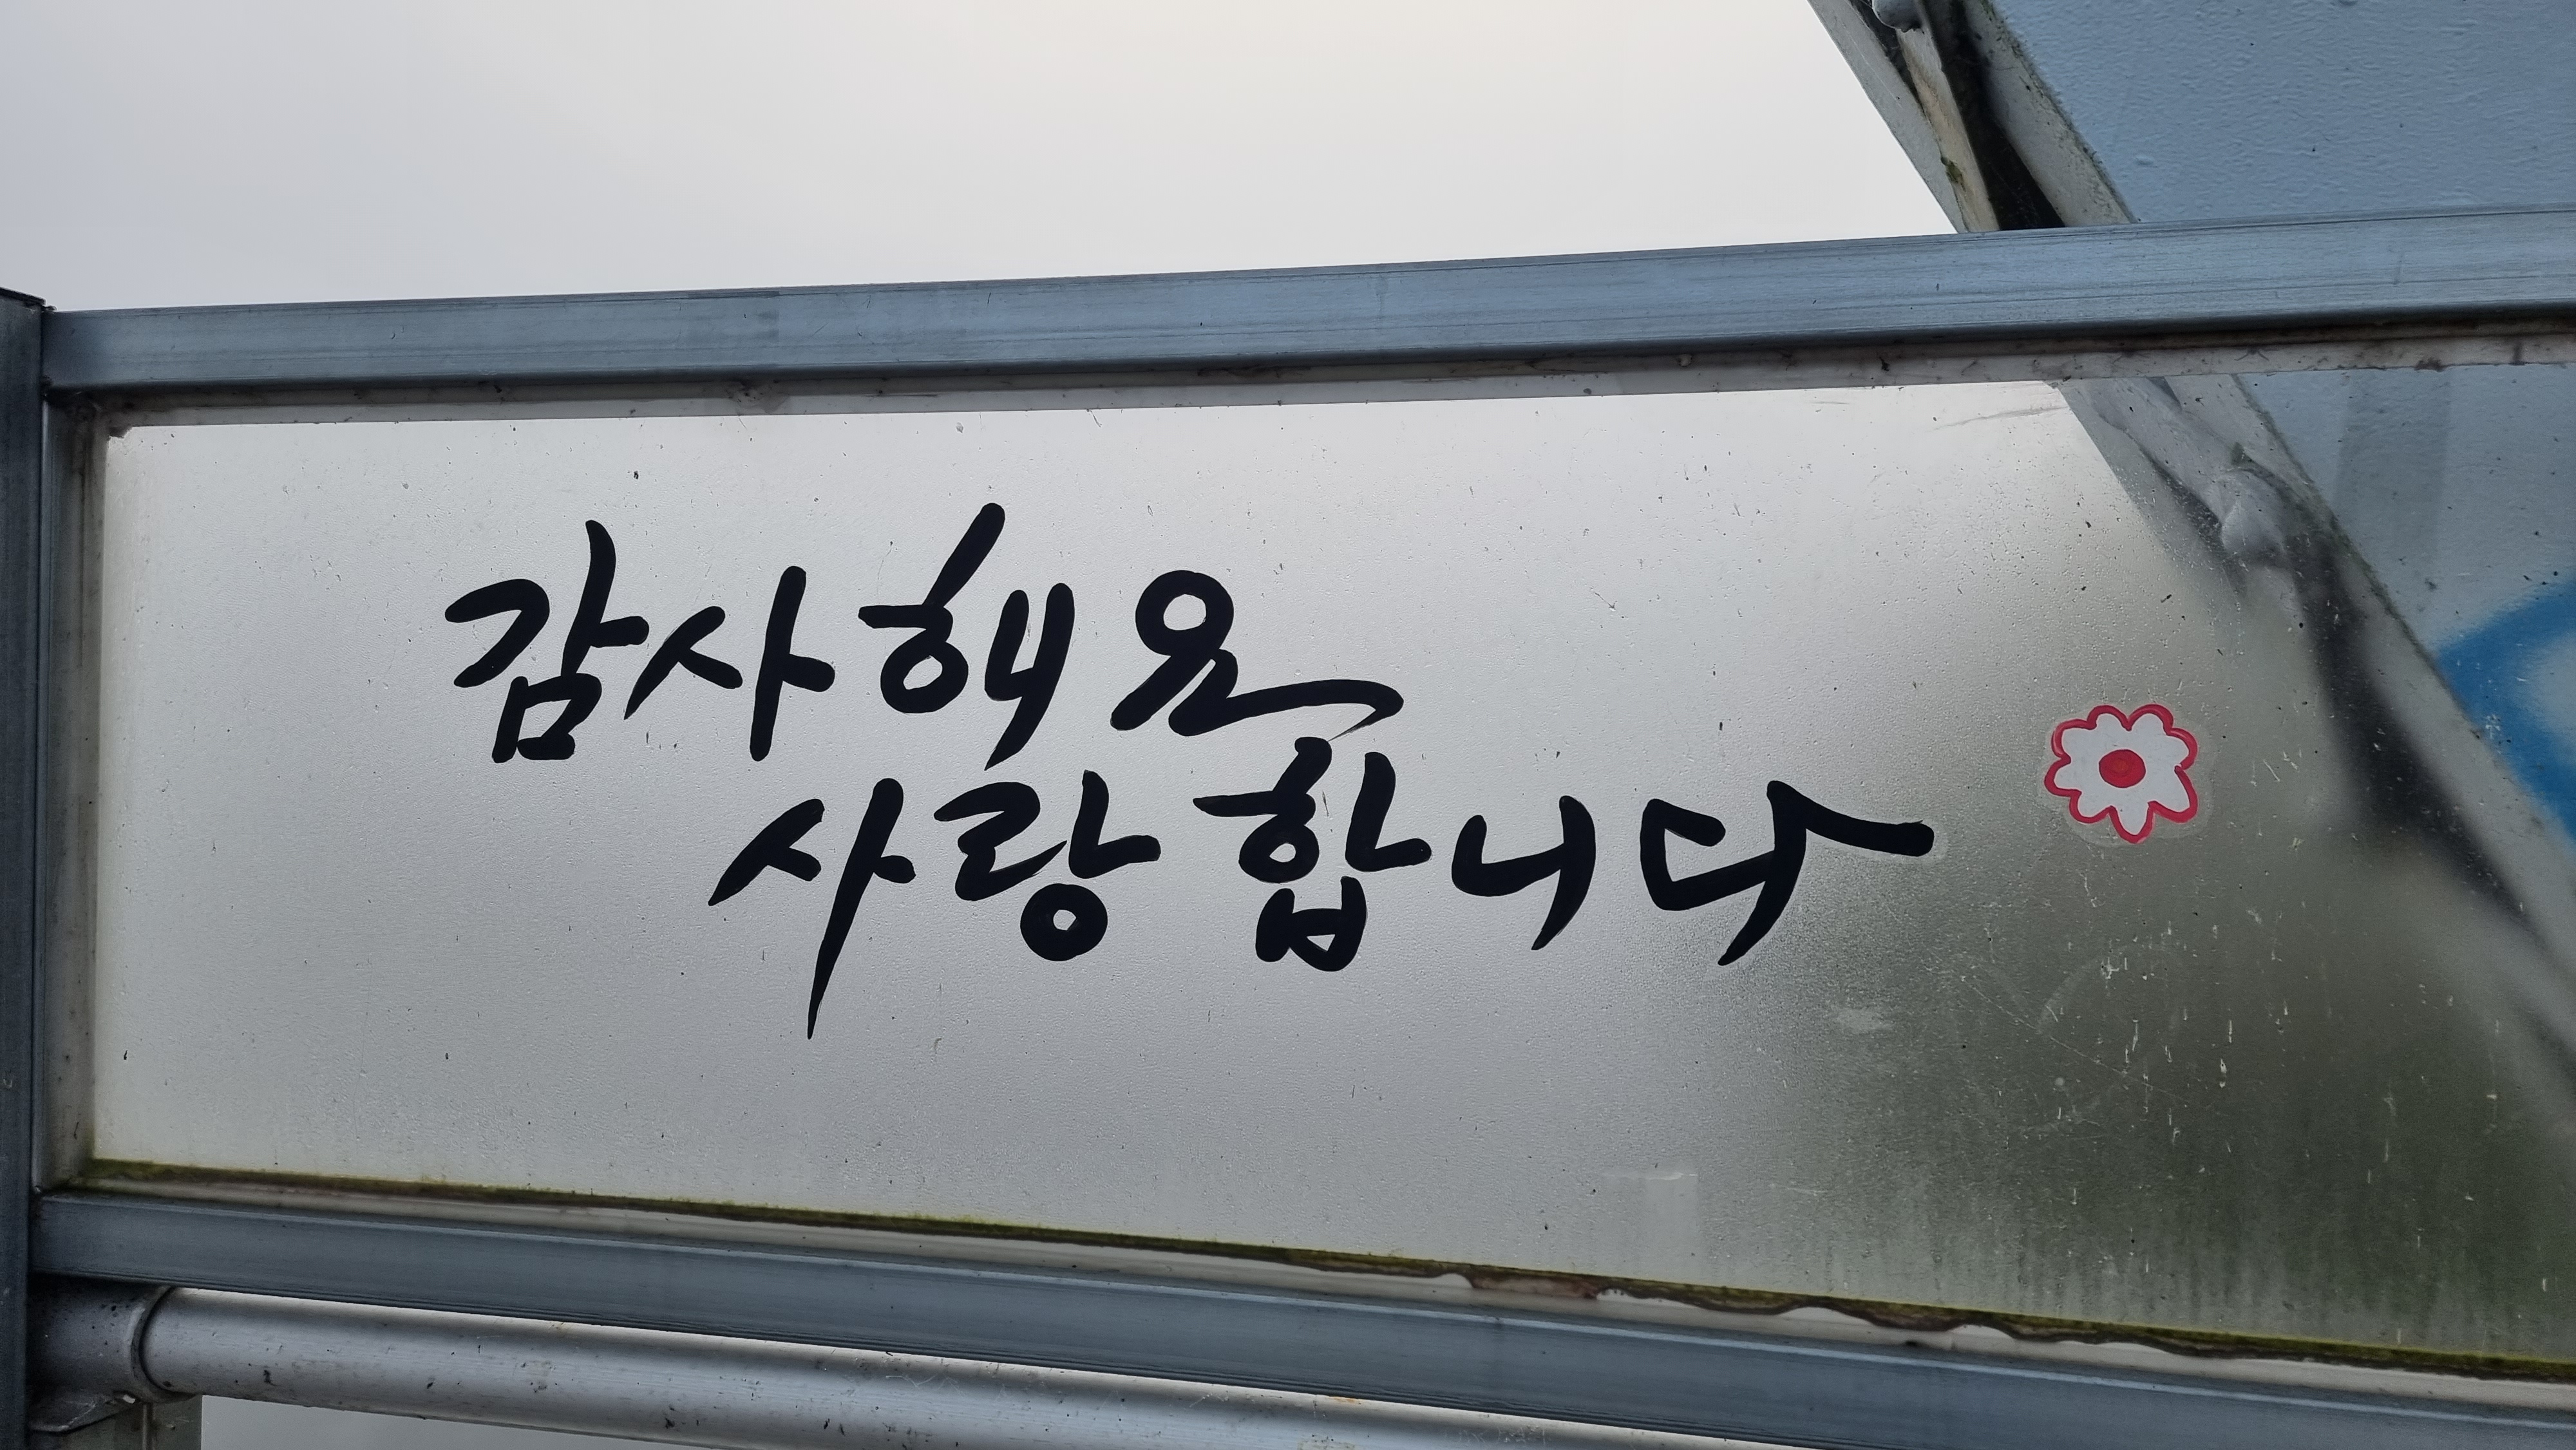 감사해요
사랑합니다